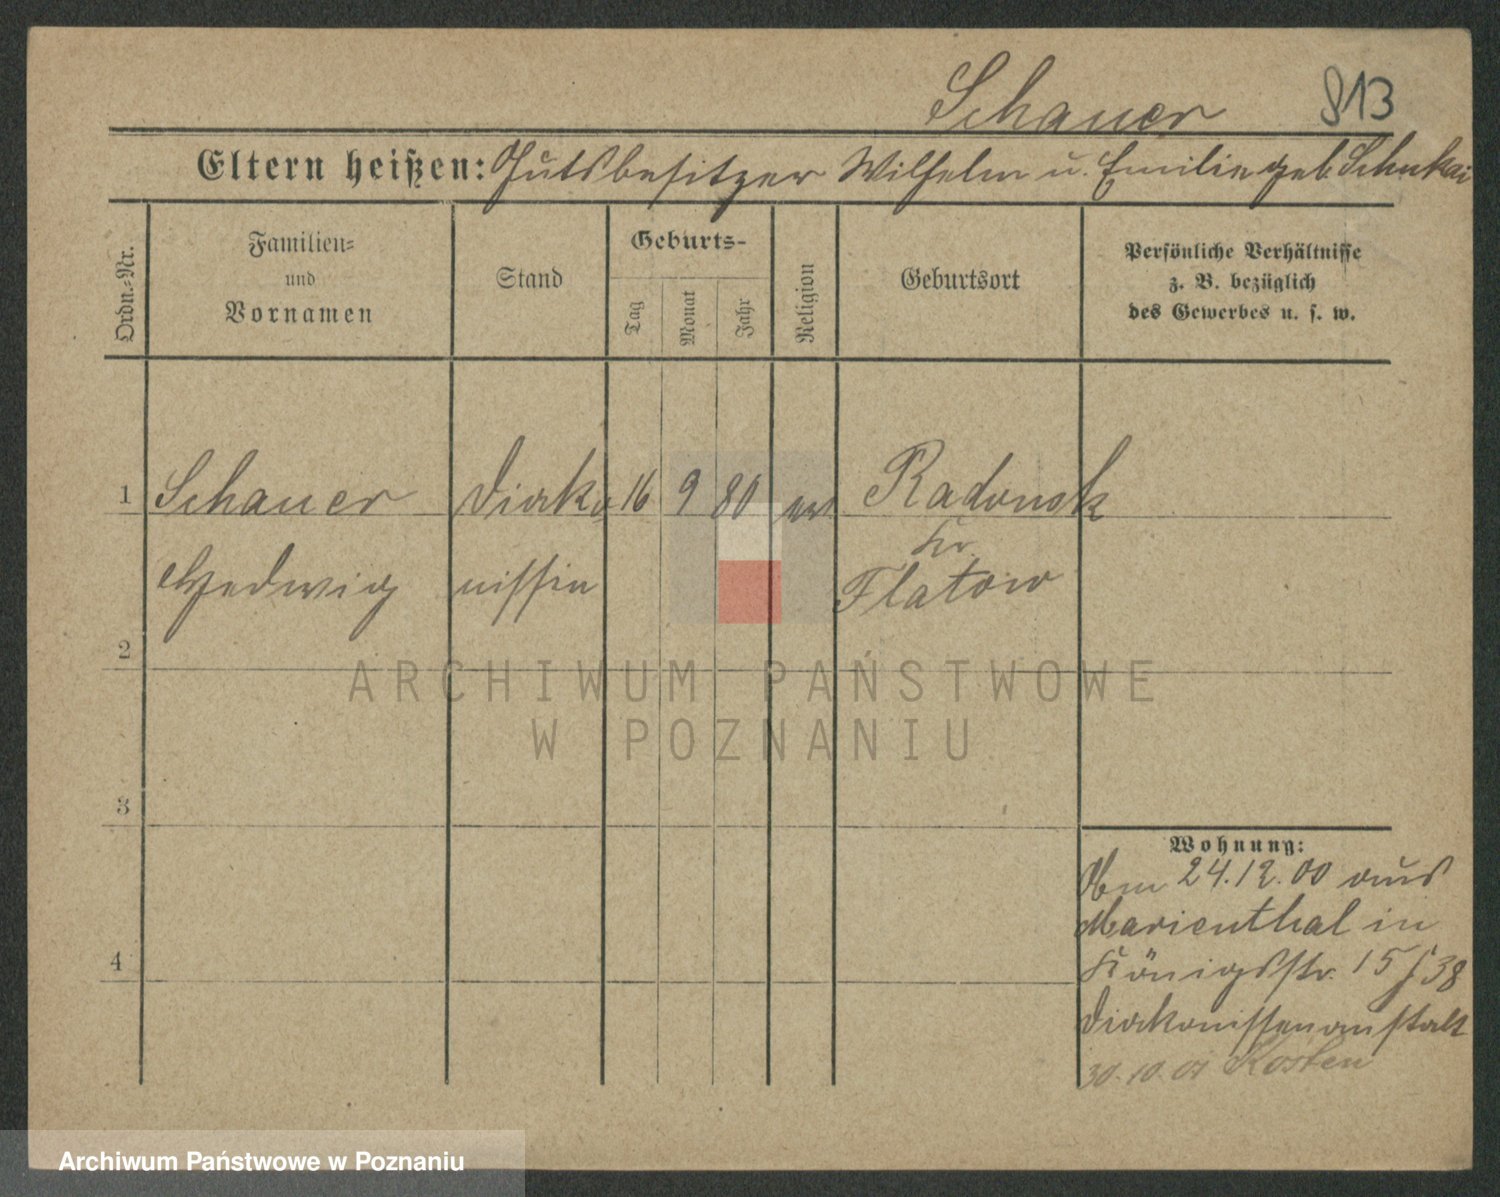 Schauer 813
Eltern heißen: Gutsbesitzer Wilhelm u. Emilie geb Schukai
Ordn.-Nr.
Familien- und Vornamen
Stand
Geburts-
Tag
Monat
Jahr
Religion
Geburtsort
Persönliche Verhältnisse
z. B. bezüglich
des Gewerbes u. s. w.
1 Schauer Diako 16 9 80 ev Radonsk
Kr
Hedwig nissin Flatow
2
ARCHIWUM PAŃSTWOWE
W POZNANIU
3
Wohnung:
24.12.00 aus
Marienthal in
4 Königsstr. 15 / 38
Diakonissenanstalt
30.10.01 Kosten
Archiwum Państwowe w Poznaniu